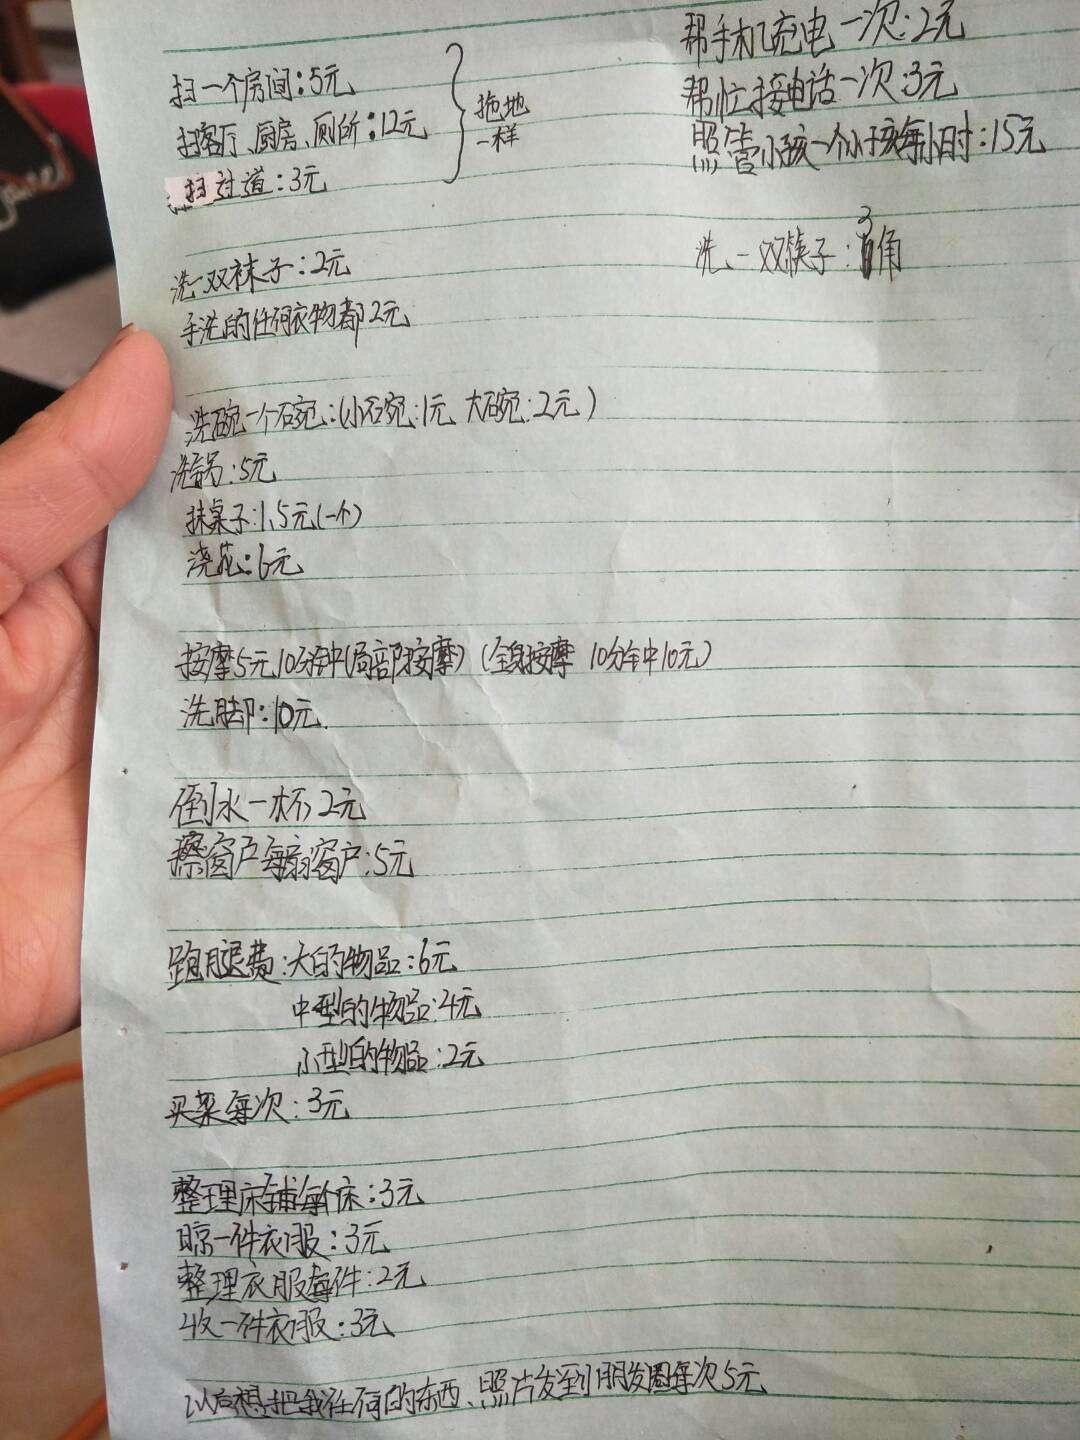 扫一个房间:5元
扫客厅、厨房、厕所:12元
扫过道:3元
拖地
一样
洗一双袜子:2元
手洗的任何衣物都2元
洗碗一个碗:(小碗:1元 大碗:2元)
洗锅:5元
抹桌子:1.5元(一个)
浇花:6元
按摩5元10分钟(局部按摩)(全身按摩 10分钟10元)
洗脚:10元
倒水一杯2元
擦窗户每扇窗户:5元
跑腿费:大的物品:6元
中型的物品:4元
小型的物品:2元
买菜每次:3元
整理床铺每个床:3元
晾一件衣服:3元
整理衣服每件:2元
收一件衣服:3元
以后想把我任何的东西、照片发到朋友圈每次5元
帮手机充电一次:2元
帮忙接电话一次:3元
照管小孩一个小孩每小时:15元
洗一双筷子:3角